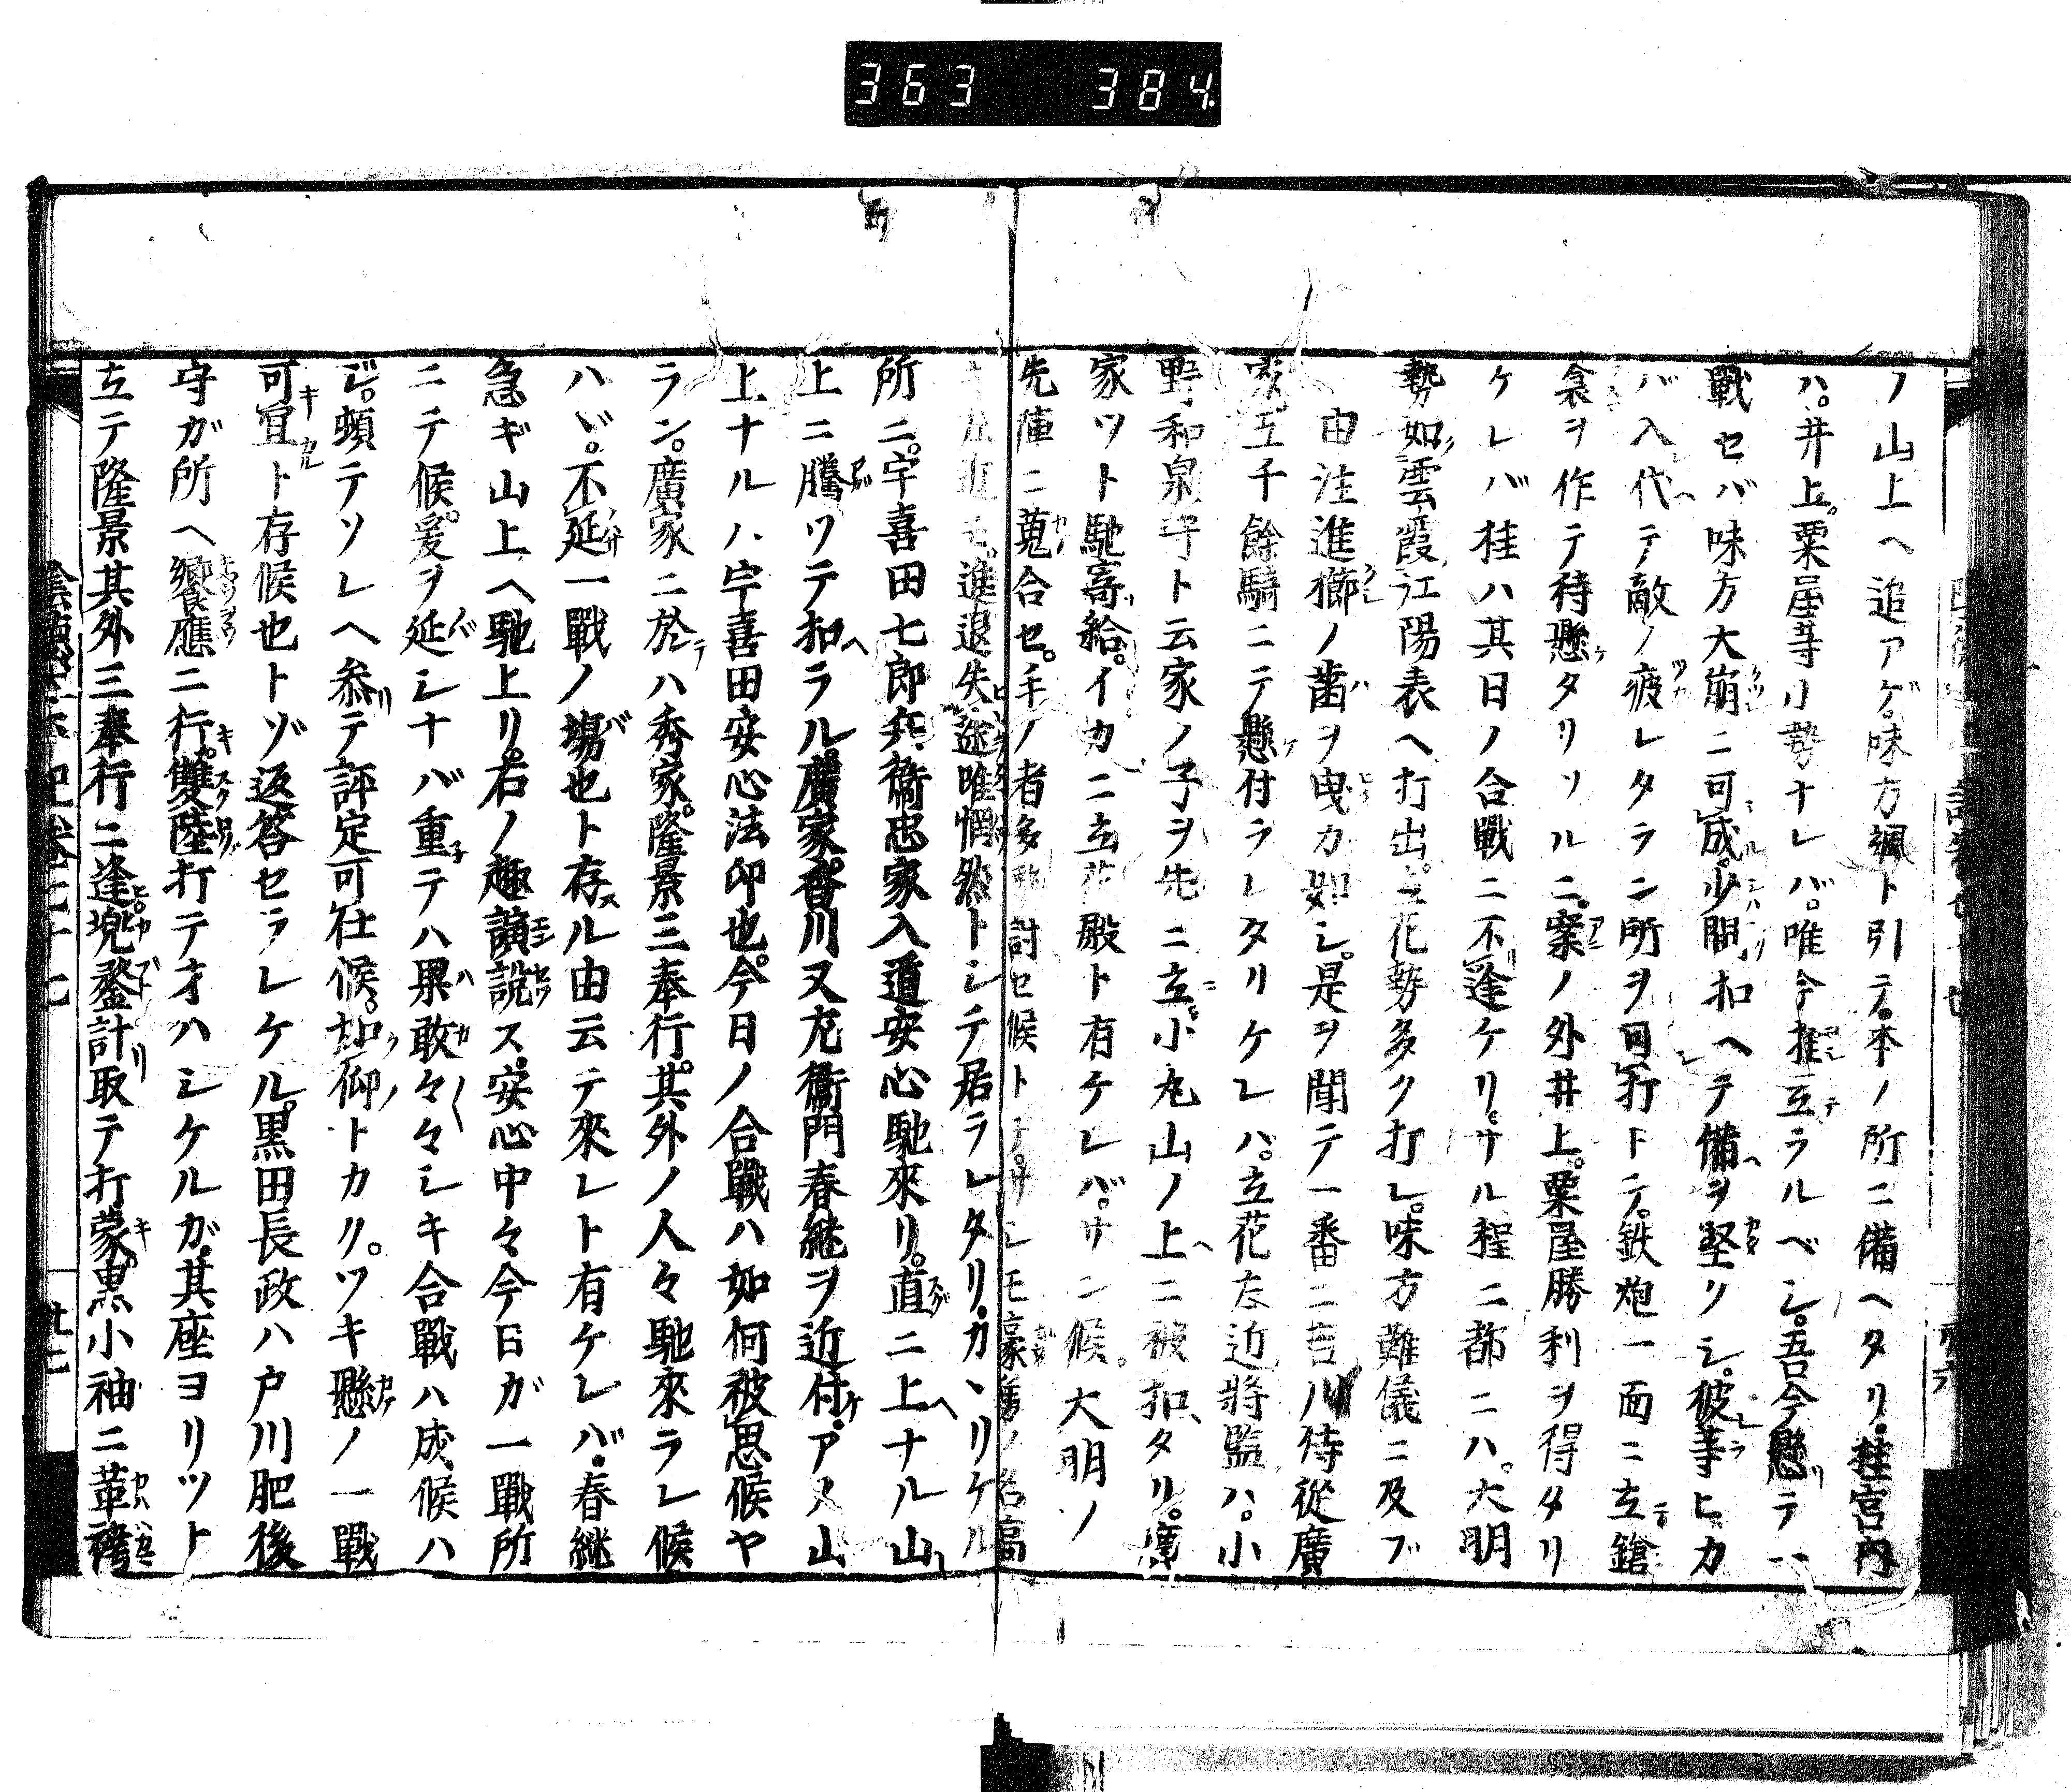 363 384
ノ山上ヘ追アゲ味方颯ト引テ。本ノ所ニ備ヘタリ。桂宮内
ハ。井上。粟屋等小勢ナレバ。唯今推立ラルベシ。吾今懸テ一
戰セバ味方大崩ニ可成。少間扣ヘテ備ヲ堅ソシ。彼等ヒカ
バ入代テ敵ノ疲レタラン所ヲ可打トテ。鉄炮一面ニ立鎗
衾ヲ作テ待懸タリソルニ。案ノ外井上。粟屋勝利ヲ得タリ
ケレバ桂ハ其日ノ合戰ニ不逢ケリ。サル程ニ都ニハ。大明
勢如雲霞江陽表ヘ打出。立花勢多ク打レ。味方難儀ニ及ブ
由注進櫛ノ齒ヲ曳カ如シ。是ヲ聞テ一番ニ吉川侍從廣
家五千餘騎ニテ懸付ラレタリケレハ。立花左近將監ハ。小
野和泉守ト云家ノ子ヲ先ニ立。小丸山ノ上ニ被扣タリ。廣
家ツト馳寄給。イカニ立花殿ト有ケレバ。サン候。大明ノ
先陣ニ蒐合セ。手ノ者多討セ候トテ。サシモ豪勇ノ名高
進退失途唯惘然トシテ居ラレタリ。カヽリケル
所ニ。宇喜田七郎兵衞忠家入道安心馳來リ。直ニ上ナル山
上ニ騰ツテ扣ラル。廣家。香川又左衞門春継ヲ近付。アヌ山
上ナルハ宇喜田安心法印也。今日ノ合戰ハ如何被思候ヤ
ラン。廣家ニ於ハ秀家。隆景三奉行。其外ノ人々馳來ラレ候
ハヾ。不延一戰ノ場也ト存ル由云テ來レト有ケレバ。春継
急ギ山上ヘ馳上リ。右ノ趣演說ス。安心中々今日ガ一戰所
ニテ候。爰ヲ延シナバ重テハ果敢々々シキ合戰ハ成候ハ
ジ。頓テソレヘ参テ評定可仕候。如仰トカリ。ツキ懸ノ一戰
可宜ト存候也トゾ返答セラレケル。黒田長政ハ戸川肥後
守ガ所ヘ饗應ニ行。雙陸打テオハシケルガ。其座ヨリツト
立テ隆景其外三奉行ニ逢兜鍪計取テ打蒙。黒小袖ニ革袴